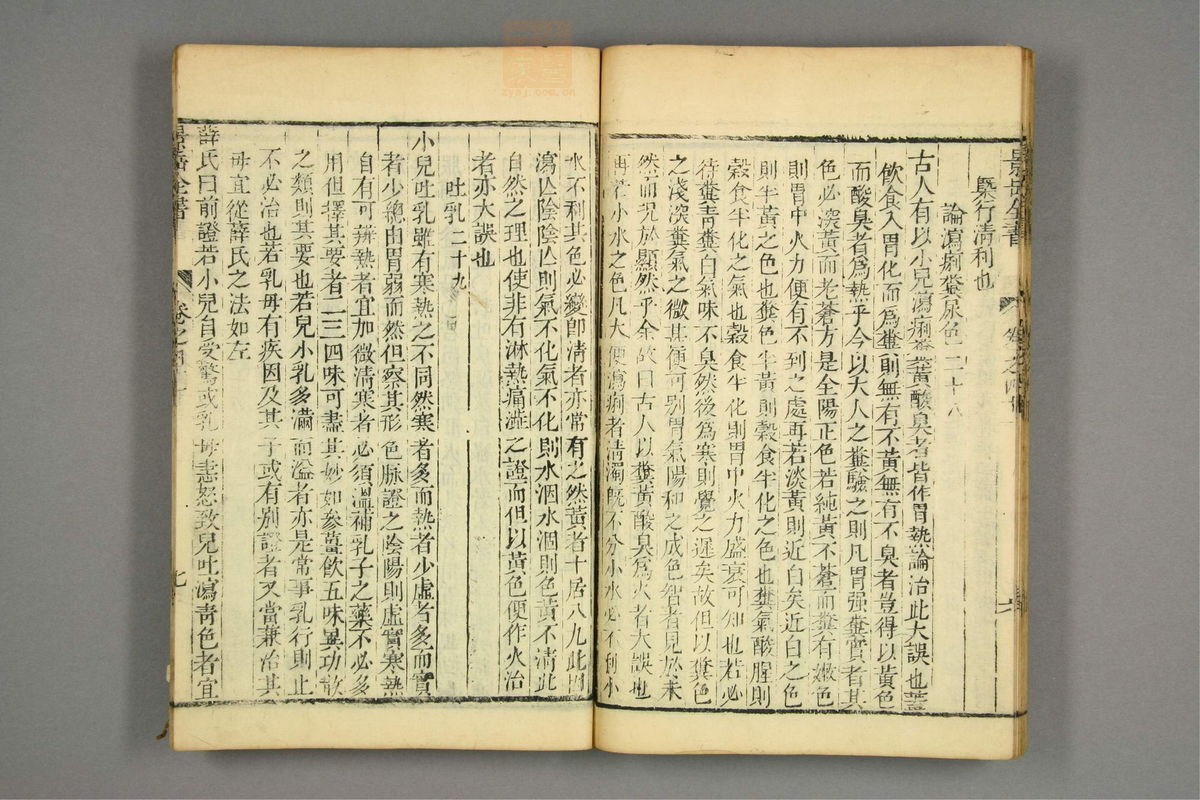 景岳全書
卷之四
槩行清利也
論瀉痢糞尿色二十八
古人有以小兒瀉痢糞黃酸臭者皆作胃熱論治此大誤也蓋
飲食入胃化而為糞則無有不黃無有不臭者豈得以黃色
而酸臭者為熱乎今以大人之糞驗之則凡胃强糞實者其
色必深黃而老蒼方是全陽正色若純黃不蒼而糞有嫩色
則胃中火力便有不到之處再若淡黃則近白矣近白之色
則半黃之色也糞色半黃則穀食半化之色也糞氣酸腥則
穀食半化之氣也穀食半化則胃中火力盛衰可知也若必
待糞靑糞白氣味不臭然後為寒則覺之遲矣故但以糞色
之淺深糞氣之微甚便可別胃氣陽和之成色智者見於未
然而况於顯然乎余故曰古人以糞黃酸臭為火者大誤也
再若小水之色凡大便瀉痢者淸濁既不分小水必不利小
水不利其色必變即淸者亦常有之然黃者十居八九此因
瀉亾陰陰亾則氣不化氣不化則水涸水涸則色黃不淸此
自然之理也使非有淋熱痛澁之證而但以黃色便作火治
者亦大誤也
吐乳二十九
小兒吐乳雖有寒熱之不同然寒者多而熱者少虛者多而實
者少總由胃弱而然但察其形色脉證之陰陽則虛實寒熱
自有可辨熱者宜加微淸寒者必須溫補乳子之藥不必多
用但擇其要者二三四味可盡其妙如參薑飲五味異功散
之類則其要也若兒小乳多滿而溢者亦是常事乳行則止
不必治也若乳母有疾因及其子或有別證者又當兼治其
母宜從薛氏之法如左
薛氏曰前證若小兒自受驚或乳母恚怒致兒吐瀉靑色者宜
景岳全書
卷之四
七